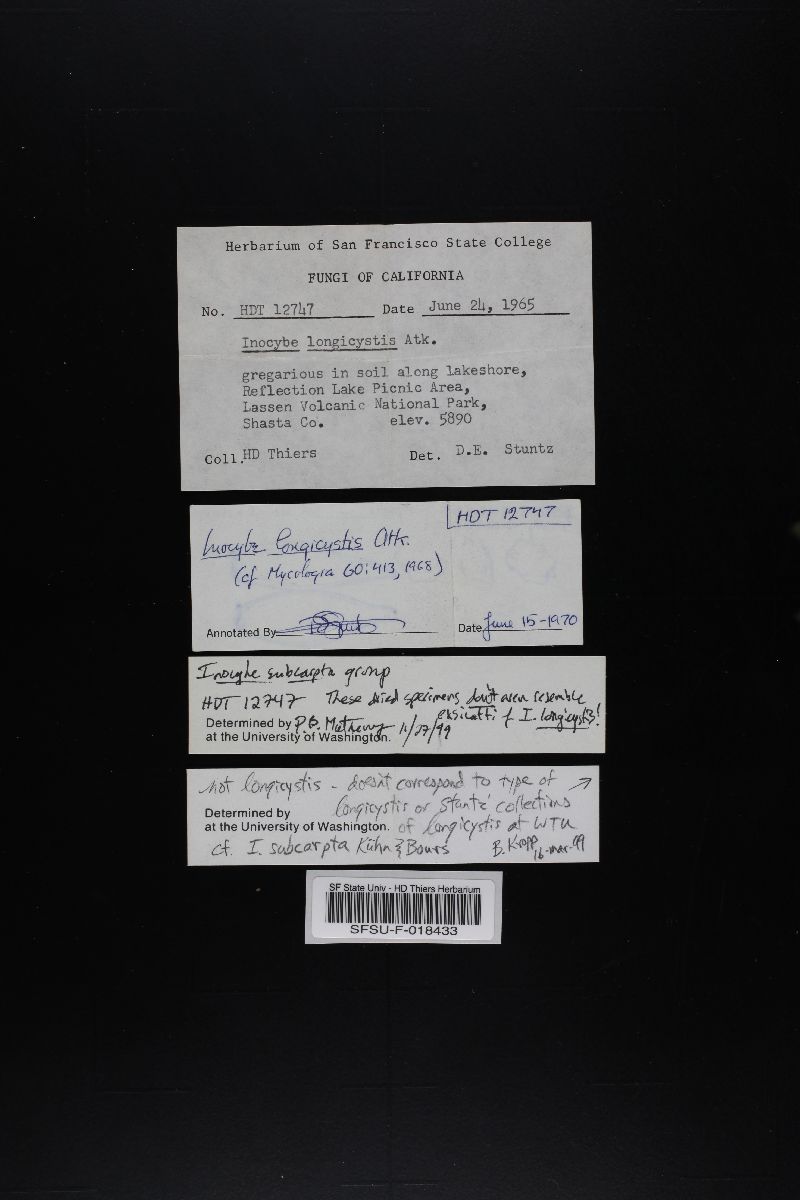 Herbarium of San Francisco State College
FUNGI OF CALIFORNIA
No. HDT 12747 Date June 24, 1965
Inocybe longicystis Atk.
gregarious in soil along lakeshore,
Reflection Lake Picnic Area,
Lassen Volcanic National Park,
Shasta Co. elev. 5890
Coll. HD Thiers Det. D.E. Stuntz
HDT 12747
Inocybe longicystis Atk.
(cf Mycologia 60:413, 1968)
Annotated By Date June 15-1970
Inocybe subcarpta group
HDT 12747 These dried specimens don't even resemble
exsicatti of I. longicystis!
Determined by P.B. Matheny 11/27/99
at the University of Washington.
not longicystis - doesn't correspond to type of
longicystis or Stuntz' collections
Determined by
at the University of Washington. of longicystis at WTU
cf. I. subcarpta Kühn & Bours B. Kropp
16-mar-99
SF State Univ - HD Thiers Herbarium
SFSU-F-018433